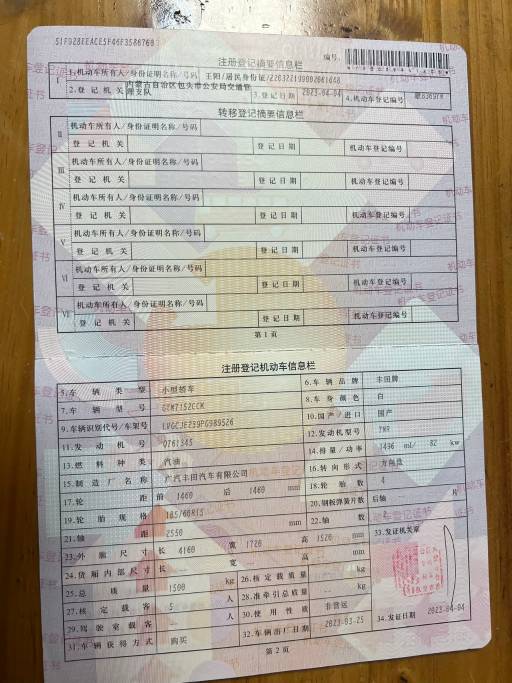 注册登记摘要信息栏
编号:
I
1.机动车所有人/身份证明名称/号码 王阳/居民身份证/
2.登记机关 内蒙古自治区包头市公安局交通管理支队 3.登记日期 2023-04-04 4.机动车登记编号
转移登记摘要信息栏
II 机动车所有人/身份证明名称/号码
登记机关 登记日期 机动车登记编号
III 机动车所有人/身份证明名称/号码
登记机关 登记日期 机动车登记编号
IV 机动车所有人/身份证明名称/号码
登记机关 登记日期 机动车登记编号
V 机动车所有人/身份证明名称/号码
登记机关 登记日期 机动车登记编号
VI 机动车所有人/身份证明名称/号码
登记机关 登记日期 机动车登记编号
VII 机动车所有人/身份证明名称/号码
登记机关 登记日期 机动车登记编号
第1页
注册登记机动车信息栏
5.车辆类型 小型轿车 6.车辆品牌 丰田牌
7.车辆型号 GTM7152CCM 8.车身颜色 白
9.车辆识别代号/车架号 LVGCJEZ39PG989526 10.国产/进口 国产
11.发动机号 0761345 12.发动机型号
13.燃料种类 汽油 14.排量/功率 1496 ml/ 82 kw
15.制造厂名称 广汽丰田汽车有限公司 16.转向形式 方向盘
17.轮距 前 1460 后 1460 mm 18.轮胎数 4
19.轮胎规格 185/60R15 20.钢板弹簧片数 后轴 片
21.轴距 2550 mm 22.轴数
23.外廓尺寸 长 4160 宽 1720 高 1520 mm 33.发证机关章
24.货厢内部尺寸 长 宽 高 mm
25.总质量 1500 kg 26.核定载质量 kg
27.核定载客 5 人 28.准牵引总质量 kg
29.驾驶室载客 人 30.使用性质 非营运
31.车辆获得方式 购买 32.车辆出厂日期 2023-03-25 34.发证日期 2023-04-04
第2页